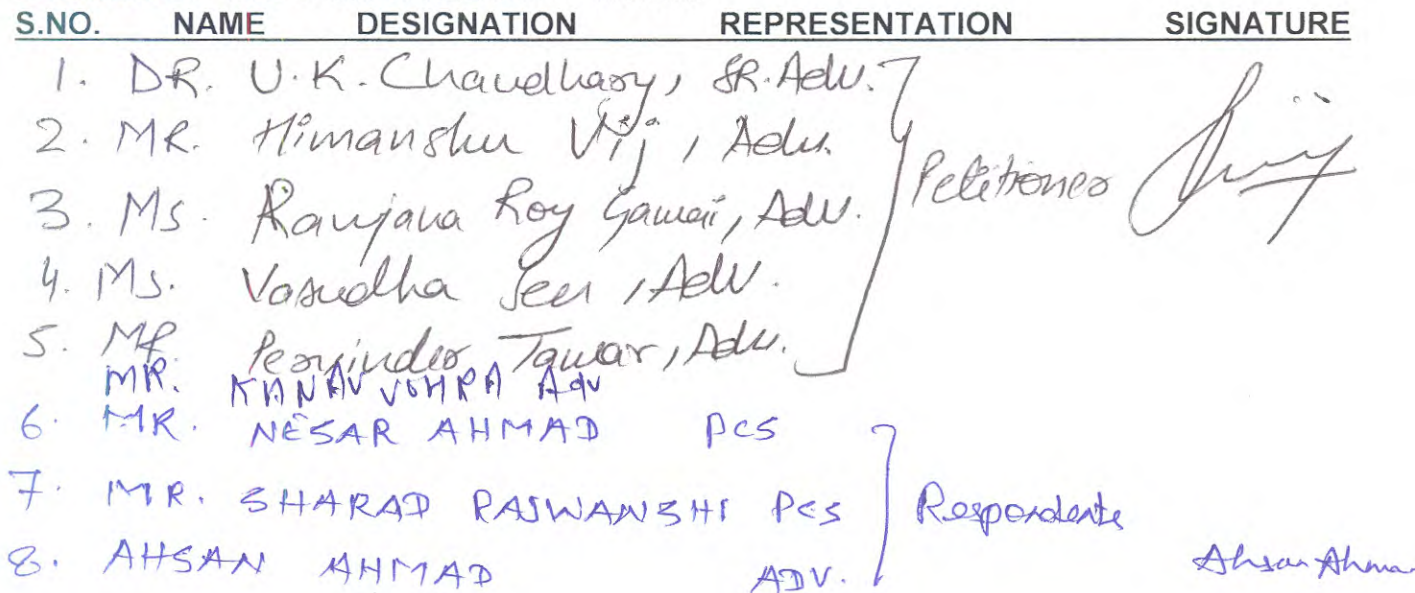 S.NO. NAME DESIGNATION REPRESENTATION SIGNATURE
1. DR. U.K. Chaudhary, SR. Adv.
2. MR. Himanshu Vij, Adv.
Petitioner
3. Ms. Ranjana Roy Gawai, Adv.
4. Ms. Vasudha Sen, Adv.
5. MR. Pervinder Tawar, Adv.
MR. KANAV VOHRA Adv
6. MR. NESAR AHMAD PCS
7. MR. SHARAD RAJWANSHI PCS Respondents
8. AHSAN AHMAD ADV. Ahsan Ahma